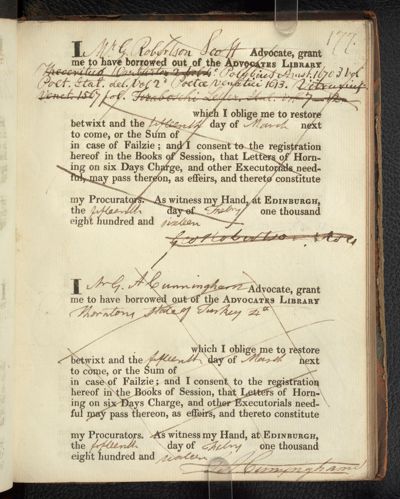 177.
I Mr G. Robertson Scott Advocate, grant
me to have borrowed out of the ADVOCATES LIBRARY
Amst. 1670 3 vol
Poet. Ital. del. Vol 2d Poetice Venetiis 1613.
Venet. 1567 fol.
which I oblige me to restore
betwixt and the fifteenth day of March next
to come, or the Sum of
in case of Failzie; and I consent to the registration
hereof in the Books of Session, that Letters of Horn-
ing on six Days Charge, and other Executorials need-
ful, may pass thereon, as effeirs, and thereto constitute
my Procurators. As witness my Hand, at EDINBURGH,
the fifteenth day of Febry one thousand
eight hundred and sixteen
Geo Robertson Scott
I Mr G. A Cunningham Advocate, grant
me to have borrowed out of the ADVOCATES LIBRARY
Thorntons State of Turkey 4o
which I oblige me to restore
betwixt and the fifteenth day of March next
to come, or the Sum of
in case of Failzie; and I consent to the registration
hereof in the Books of Session, that Letters of Horn-
ing on six Days Charge, and other Executorials need-
ful may pass thereon, as effeirs, and thereto constitute
my Procurators. As witness my Hand, at EDINBURGH,
the fifteenth day of Febry one thousand
eight hundred and sixteen
Cunningham